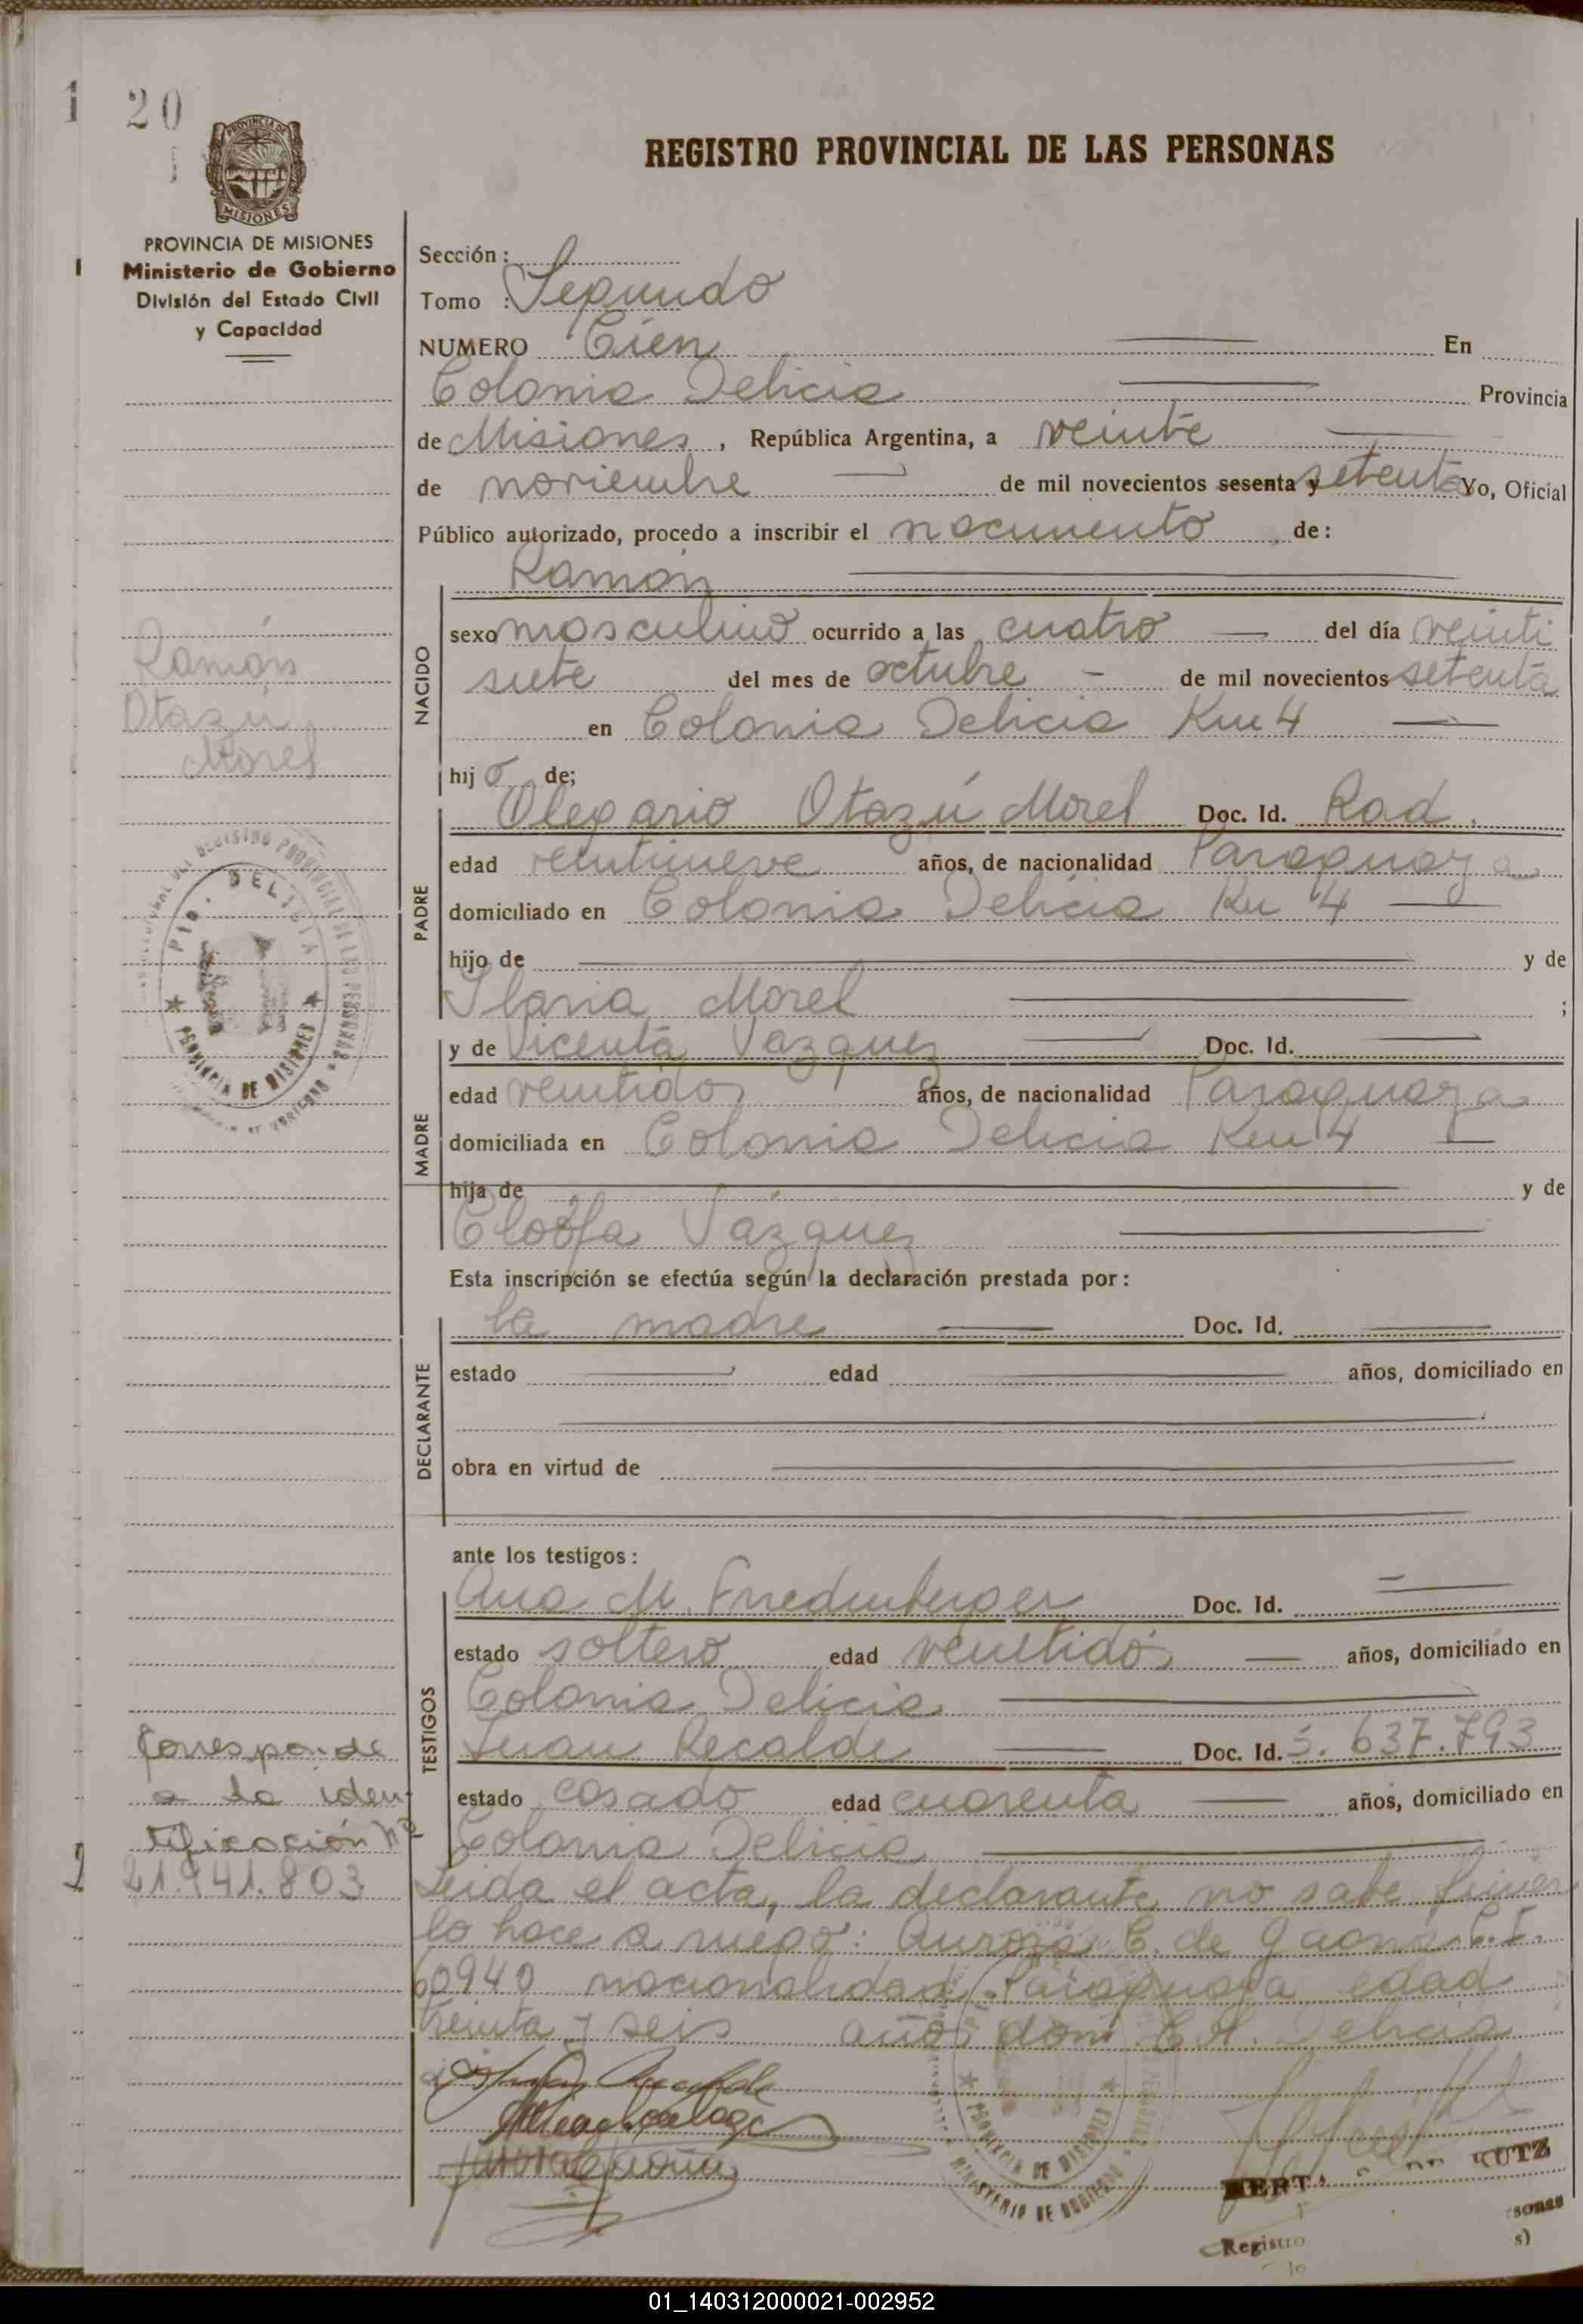 1 20
REGISTRO PROVINCIAL DE LAS PERSONAS
PROVINCIA DE MISIONES
MISIONES
PROVINCIA DE MISIONES
Ministerio de Gobierno
División del Estado Civil
y Capacidad
Sección :
Tomo : Segundo
NUMERO Cien En
Colonia Delicia Provincia
de Misiones, República Argentina, a veinte
de noviembre de mil novecientos sesenta y setenta Yo, Oficial
Público autorizado, procedo a inscribir el nacimiento de:
Ramón
Ramón
Otazú
Morel
NACIDO
sexo masculino ocurrido a las cuatro del día veinti
siete del mes de octubre de mil novecientos setenta
en Colonia Delicia Km 4
hijo de;
PADRE
Olegario Otazú Morel Doc. Id. Rad.
edad veintinueve años, de nacionalidad Paraguaya
domiciliado en Colonia Delicia Km 4
hijo de y de
Ilaria Morel ;
MADRE
y de Vicenta Vazquez Doc. Id.
edad veintidos años, de nacionalidad Paraguaya
domiciliada en Colonia Delicia Km 4
hija de y de
Cloofa Vázquez
Esta inscripción se efectúa según la declaración prestada por:
DECLARANTE
la madre Doc. Id.
estado edad años, domiciliado en
obra en virtud de
ante los testigos:
TESTIGOS
Ana M. Doc. Id.
estado soltero edad veintidós años, domiciliado en
Colonia Delicia
Juan Recalde Doc. Id. 5.637.793
estado casado edad cuarenta años, domiciliado en
Colonia Delicia
Corresponde
a la iden
tificación Nº
21.941.803
Leida el acta, la declarante no sabe firmar
lo hace a ruego: Aurora C. de Gaona C.I.
60940 nacionalidad Paraguaya edad
treinta y seis años dom Col. Delicia
PROVINCIA DE MISIONES
MINISTERIO DE GOBIERNO
KUTZ
Registro
01_140312000021-002952